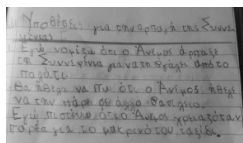 Υποθέσεις για την αρπαγή της Συννε
φένιας
Εγώ νομίζω ότι ο Άνεμος άρπαξε
τη Συννεφένια για να τη βγάλει από το
παλάτι
Θα ήθελα να πω ότι ο Άνεμος ήθελε
να την πάρει σε άλλο βασίλειο.
Εγώ πιστεύω ότι ο Άνεμος χρειαζόταν
παρέα για το μακρινό του ταξίδι.